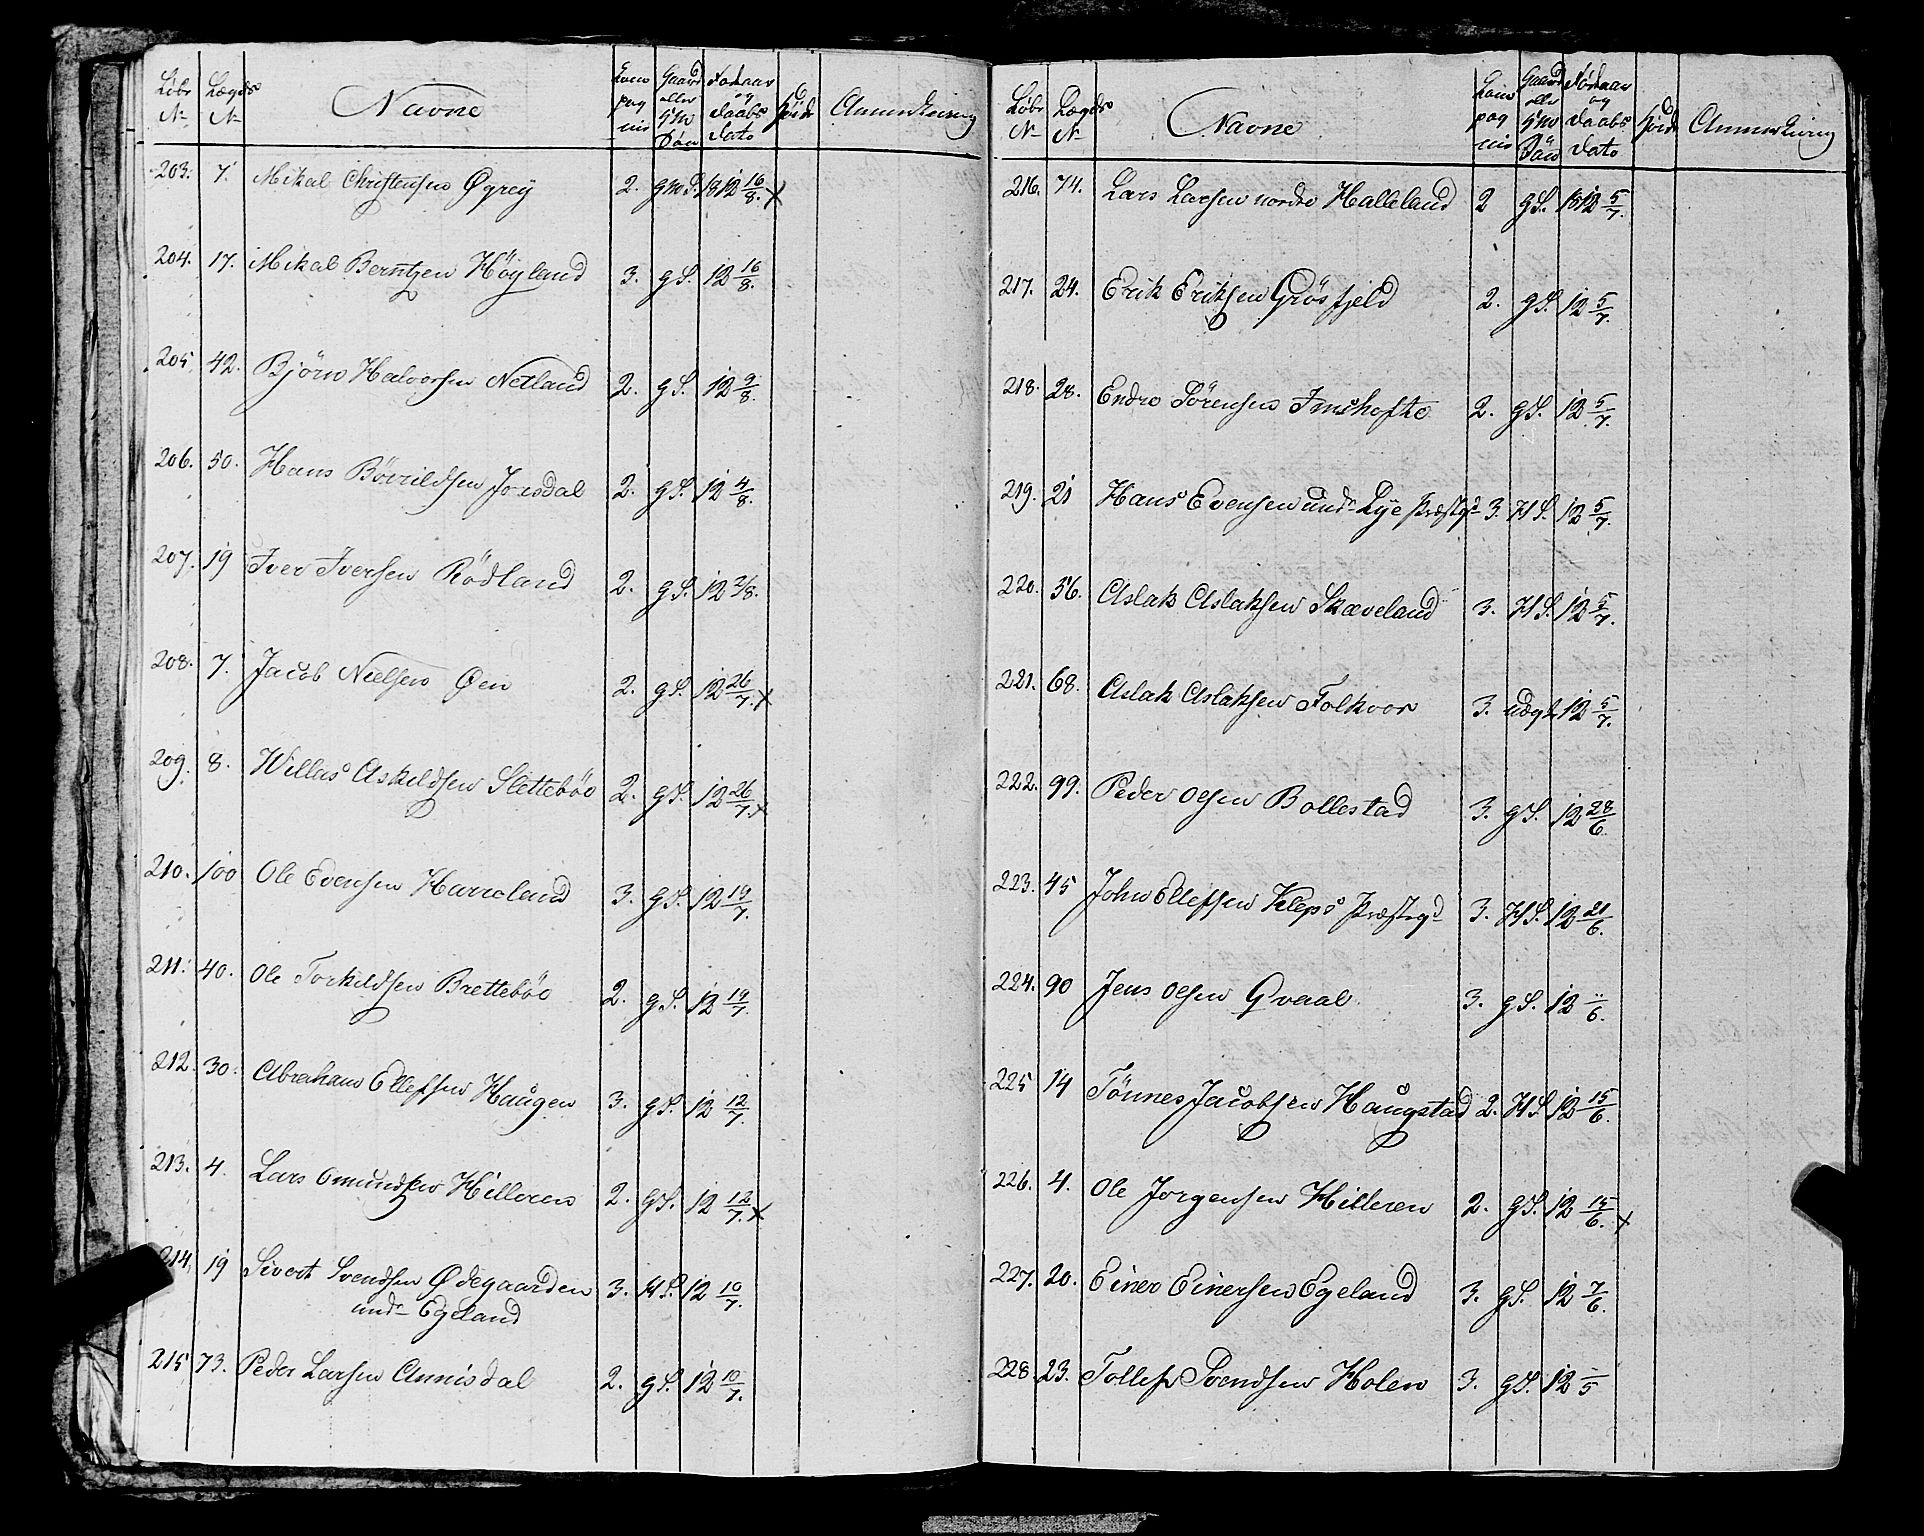 Løbe Lægds Navne Kom Gaard Fødaar Høide Anmerkning
N N pag eller og
nis Hm daabs
Søn dato
203. 7. Mikal Christensen Øgrey 2. gmS. 1812 16/8. x
204. 17. Mikal Berntzen Höyland 3. gS. 12 16/8.
205 42. Björn Halvorsen Netland 2. gS. 12 9/8.
206. 50. Hans Börrildsen Jorsdal 2. gS. 12 4/8.
207. 19 Iver Iversen Rödland 2. gS. 12 2/8.
208. 7. Jacob Nielsen Øen 2. gS. 12 26/7. x
209. 8. Willas Askildsen Sletteböe 2. gS. 12 26/7. x
210. 100 Ole Evensen Harraland 3. gS. 12 19/7.
211. 40. Ole Torkildsen Bretteböe 2. gS. 12 19/7.
212. 30. Abraham Ellefsen Haugen 3. gS. 12 12/7.
213. 4. Lars Omundsen Hilleren 2. gS. 12 12/7. x
214. 19 Sivert Svendsen Ødegaarden 3. HS. 12 10/7.
und Egeland
215 73. Peder Larsen Annisdal 2. gS. 12 10/7.
Løbe Lægds Navne Kom Gaard Fødaar Høide Anmerkning
N N pag eller og
nis Hm daabs
Søn dato
216. 74. Lars Larsen nordre Halleland 2 gS. 1812 5/7.
217. 24. Erik Eriksen Grösfjeld 2. gS. 12 5/7.
218. 28. Endre Sörensen Imshofte 2. gS. 12 5/7.
219. 21 Hans Evensen und Lye Præstgd 3. HS. 12 5/7.
220. 56. Aslak Aslaksen Skæveland 3. HS. 12 5/7.
221. 68. Aslak Aslaksen Folkvor 3. udgt 12 5/7.
222. 99. Peder Olsen Bollestad 3. gS. 12 28/6.
223. 45 John Ellefsen Kleps Præstegd 3. HS. 12 21/6.
224. 90 Jens Olsen Qvaal 3. gS. 12 "/6.
225 14 Tönnes Jacobsen Haugstad 2. HS. 12 15/6.
226. 4. Ole Jorgensen Hilleren 2. gS. 12 15/6. x
227. 20. Einer Einersen Egeland 3. gS. 12 7/6.
228. 23. Tollef Svendsen Holen 3. gS. 12 -/5